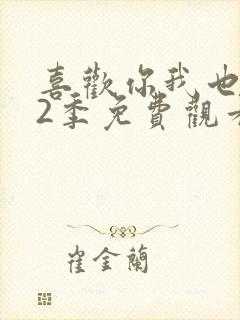 喜歡你我也
2季免費觀看
崔金蘭